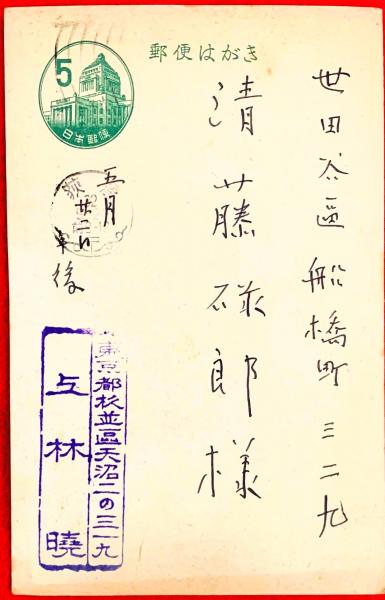 郵便はがき
5
日本郵便
世田谷區船橋町三二九
清藤碌郎様
五月
廿二日
午後
東京都杉並區天沼二の三一九
上林曉